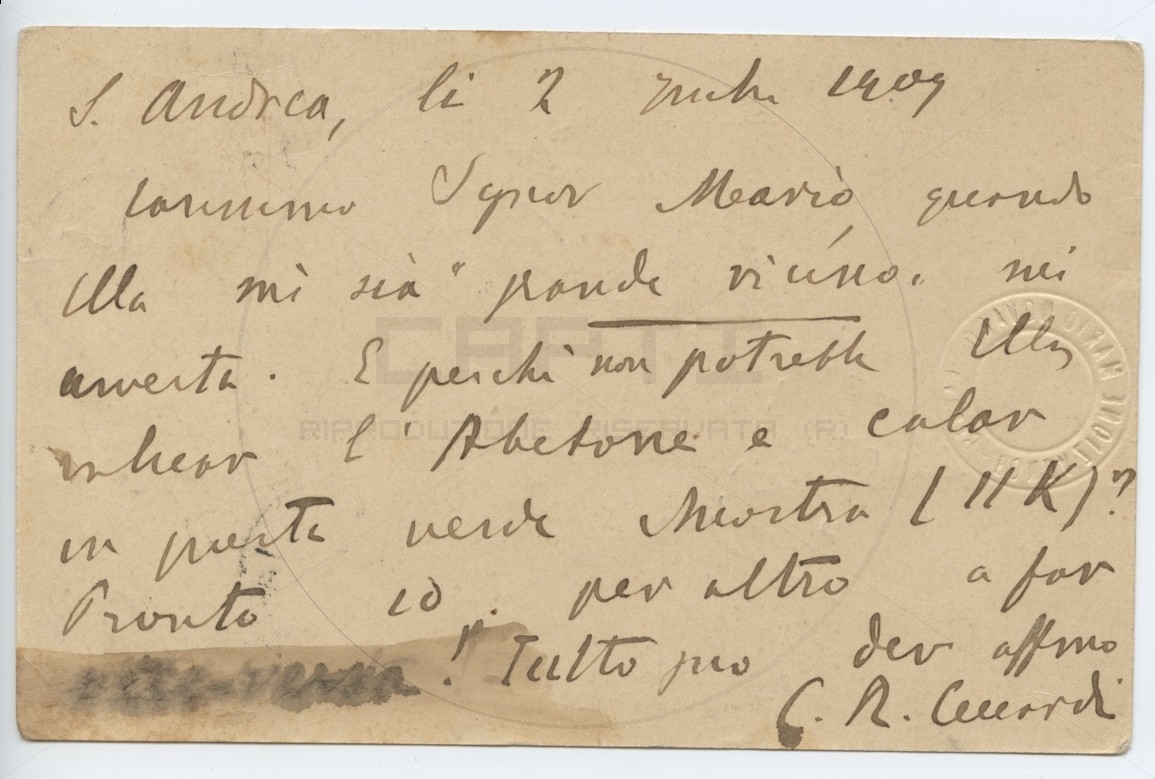 S. Andrea, li 2 1909
Carissimo Signor Mario, quando
Ella mi sia "grande vicino" mi
avverta. E perchè non potrebbe Ella
valicar l'Abetone e calar
in questa verde Mostra (11 K)?
Pronto io per altro a far
vice-versa! Tutto suo dev affmo
C. R. Ceccardi
CARLI
RIPRODUZIONE RISERVATA (R)